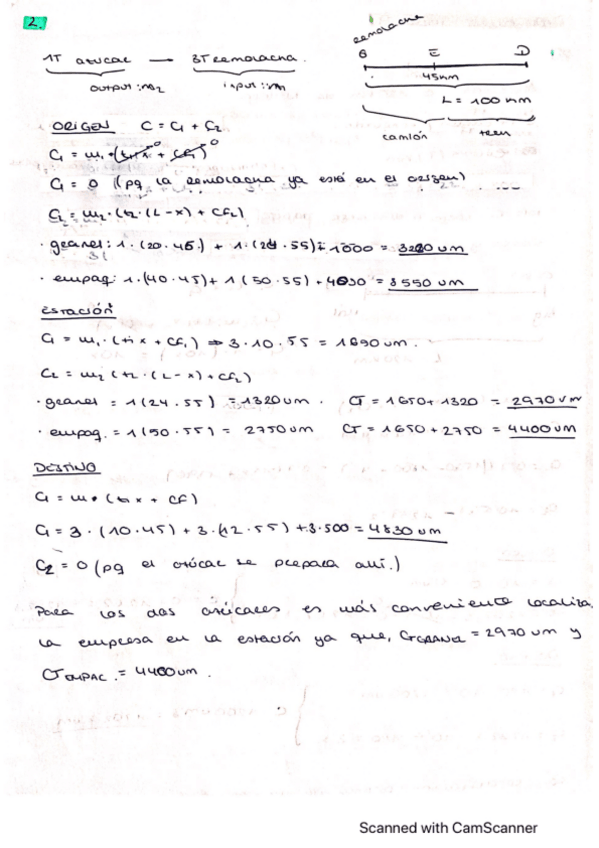 2.
remolacha
1T azucar → 3T remolacha.
output: m2 input: m1
O E D
45 km
L = 100 km
camión tren
ORIGEN C = C1 + C2
C1 = m1 · (t1 · x + CF1) 0 0
C1 = 0 (pq la remolacha ya está en el origen)
C2 = m2 · (t2 · (L - x) + CF2)
· granel: 1 · (20 · 45) + 1 · (24 · 55) + 1000 = 3220 um
· empaq: 1 · (40 · 45) + 1 (50 · 55) + 4000 = 8550 um
ESTACIÓN
C1 = m1 · (t1 x + CF1) ⇒ 3 · 10 · 55 = 1650 um.
C2 = m2 (t2 · (L - x) + CF2)
· granel = 1 (24 · 55) = 1320 um. CT = 1650 + 1320 = 2970 um
· empaq. = 1 (50 · 55) = 2750 um CT = 1650 + 2750 = 4400 um
DESTINO
C1 = m · (t1 x + CF)
C1 = 3 · (10 · 45) + 3 · (12 · 55) + 3 · 500 = 4830 um
C2 = 0 (pq el azúcar se prepara allí.)
Para los dos azúcares es más conveniente localiza
la empresa en la estación ya que, CT GRANEL = 2970 um y
CT EMPAC. = 4400 um.
Scanned with CamScanner